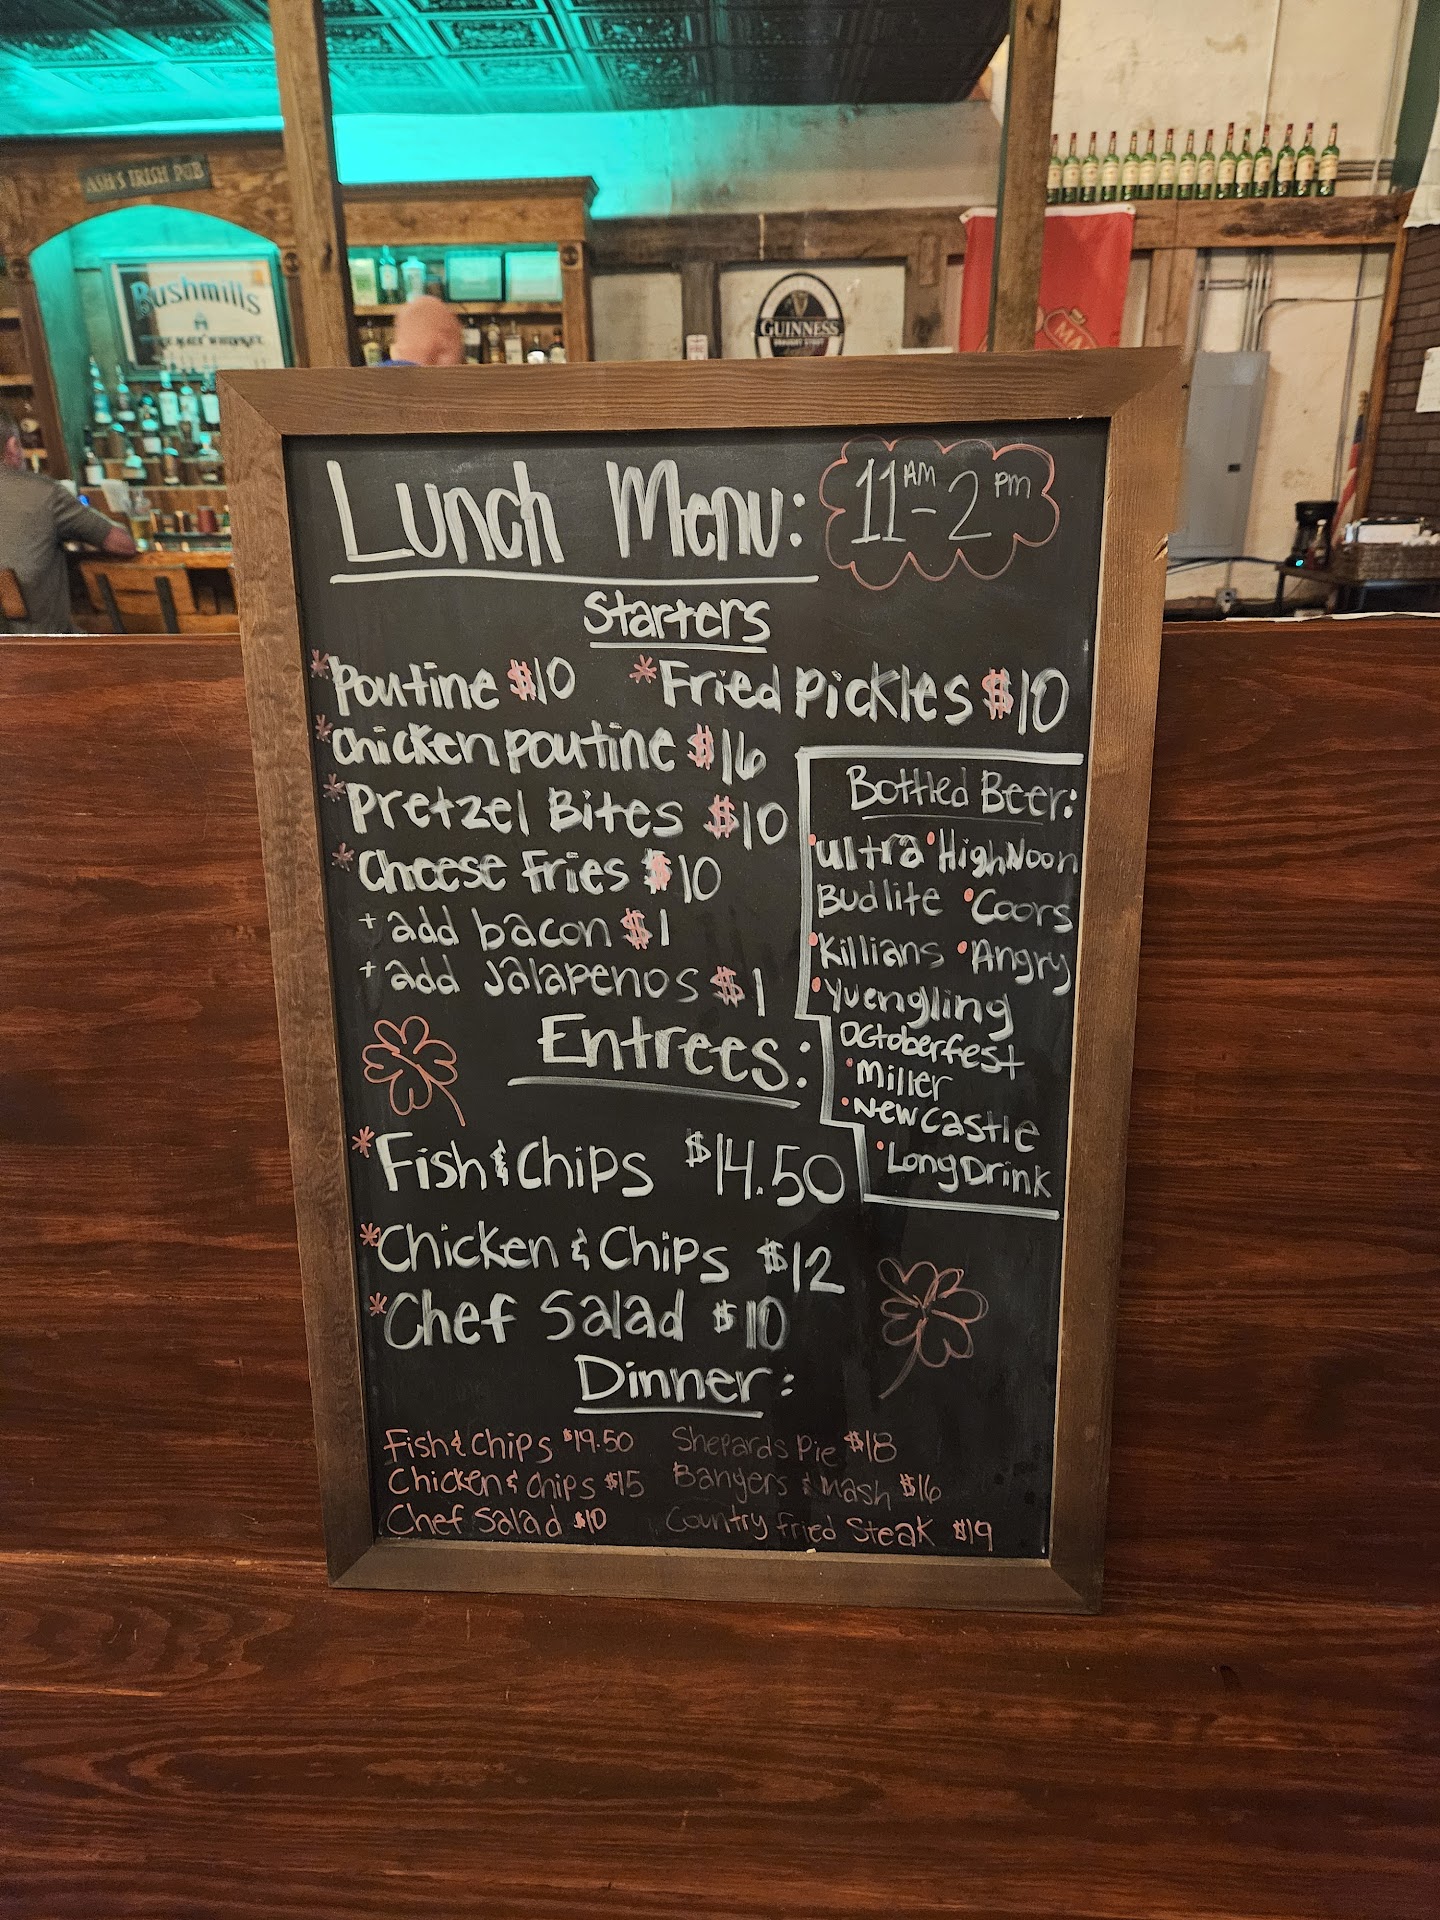 ASH'S IRISH PUB
Bushmills
GUINNESS
DRAUGHT STOUT
Lunch Menu: 11 AM - 2 PM
Starters
*Poutine $10 *Fried Pickles $10
*Chicken Poutine $16
*Pretzel Bites $10
*Cheese Fries $10
+ add bacon $1
+ add Jalapenos $1
Bottled Beer:
•Ultra •High Noon
Budlite •Coors
•Killians •Angry
•Yuengling
Octoberfest
•Miller
•New Castle
•Long Drink
Entrees:
*Fish & Chips $14.50
*Chicken & Chips $12
*Chef Salad $10
Dinner:
Fish & Chips $19.50 Shepards Pie $18
Chicken & Chips $15 Bangers & Mash $16
Chef Salad $10 Country Fried Steak $19